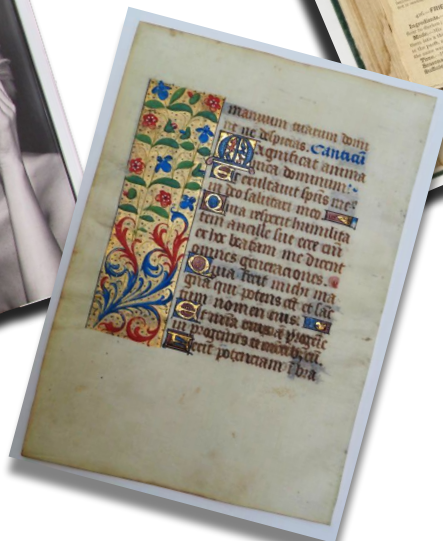 manuum tuarum domi
ne ne despicias. Canticu
Magnificat anima
mea dominum.
Et exultauit spūs meꝰ
in deo salutari meo
Quia respexit humilita
tem ancille sue ecce em̄
ex hoc beatam me dicent
omnes generaciones.
Quia fecit michi ma
gna qui potens est et sac̄
tum nomen eius.
Et mīa eius a progenie
in progenies
Fecit potenciam ī bra